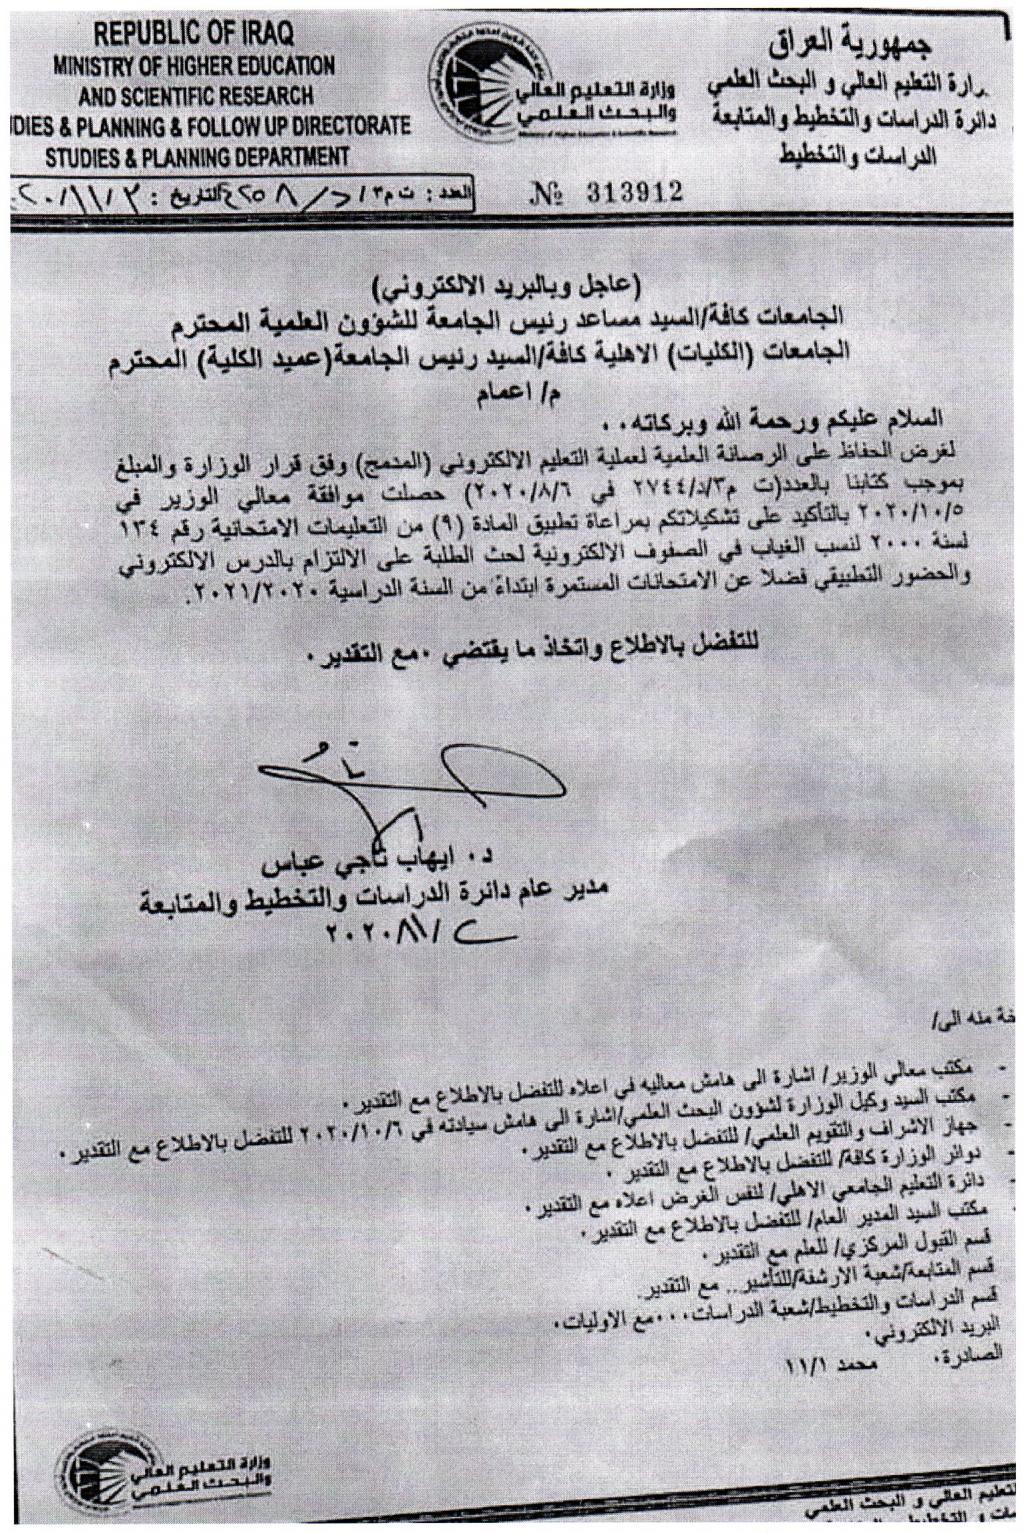 REPUBLIC OF IRAQ
MINISTRY OF HIGHER EDUCATION
AND SCIENTIFIC RESEARCH
DIES & PLANNING & FOLLOW UP DIRECTORATE
STUDIES & PLANNING DEPARTMENT
وزارة التعليم العالي
والبحث العلمي
Ministry of Higher Education & Scientific Research
جمهورية العراق
زارة التعليم العالي و البحث العلمي
دائرة الدراسات والتخطيط والمتابعة
الدراسات والتخطيط
العدد : ت م٣/د/ التاريخ :
№ 313912
(عاجل وبالبريد الالكتروني)
الجامعات كافة/السيد مساعد رئيس الجامعة للشؤون العلمية المحترم
الجامعات (الكليات) الاهلية كافة/السيد رئيس الجامعة(عميد الكلية) المحترم
م/ اعمام
السلام عليكم ورحمة الله وبركاته٠٠
لغرض الحفاظ على الرصانة العلمية لعملية التعليم الالكتروني (المدمج) وفق قرار الوزارة والمبلغ
بموجب كتابنا بالعدد(ت م٣/د/٢٧٤٤ في ٢٠٢٠/٨/٦) حصلت موافقة معالي الوزير في
٢٠٢٠/١٠/٥ بالتأكيد على تشكيلاتكم بمراعاة تطبيق المادة (٩) من التعليمات الامتحانية رقم ١٣٤
لسنة ٢٠٠٠ لنسب الغياب في الصفوف الالكترونية لحث الطلبة على الالتزام بالدرس الالكتروني
والحضور التطبيقي فضلا عن الامتحانات المستمرة ابتداءً من السنة الدراسية ٢٠٢١/٢٠٢٠.
للتفضل بالاطلاع واتخاذ ما يقتضي ٠مع التقدير٠
د٠ ايهاب ناجي عباس
مدير عام دائرة الدراسات والتخطيط والمتابعة
٢٠٢٠/١١/٢
خة منه الى/
- مكتب معالي الوزير/ اشارة الى هامش معاليه في اعلاه للتفضل بالاطلاع مع التقدير٠
- مكتب السيد وكيل الوزارة لشؤون البحث العلمي/اشارة الى هامش سيادته في ٢٠٢٠/١٠/٦ للتفضل بالاطلاع مع التقدير٠
- جهاز الاشراف والتقويم العلمي/ للتفضل بالاطلاع مع التقدير٠
- دوائر الوزارة كافة/ للتفضل بالاطلاع مع التقدير ٠
- دائرة التعليم الجامعي الاهلي/ لنفس الغرض اعلاه مع التقدير٠
- مكتب السيد المدير العام/ للتفضل بالاطلاع مع التقدير٠
قسم القبول المركزي/ للعلم مع التقدير٠
قسم المتابعة/شعبة الارشفة/للتأشير.. مع التقدير.
قسم الدراسات والتخطيط/شعبة الدراسات٠٠٠مع الاوليات٠
البريد الالكتروني٠
الصادرة٠ محمد ١١/١
وزارة التعليم العالي
والبحث العلمي
لتعليم العالي و البحث العلمي